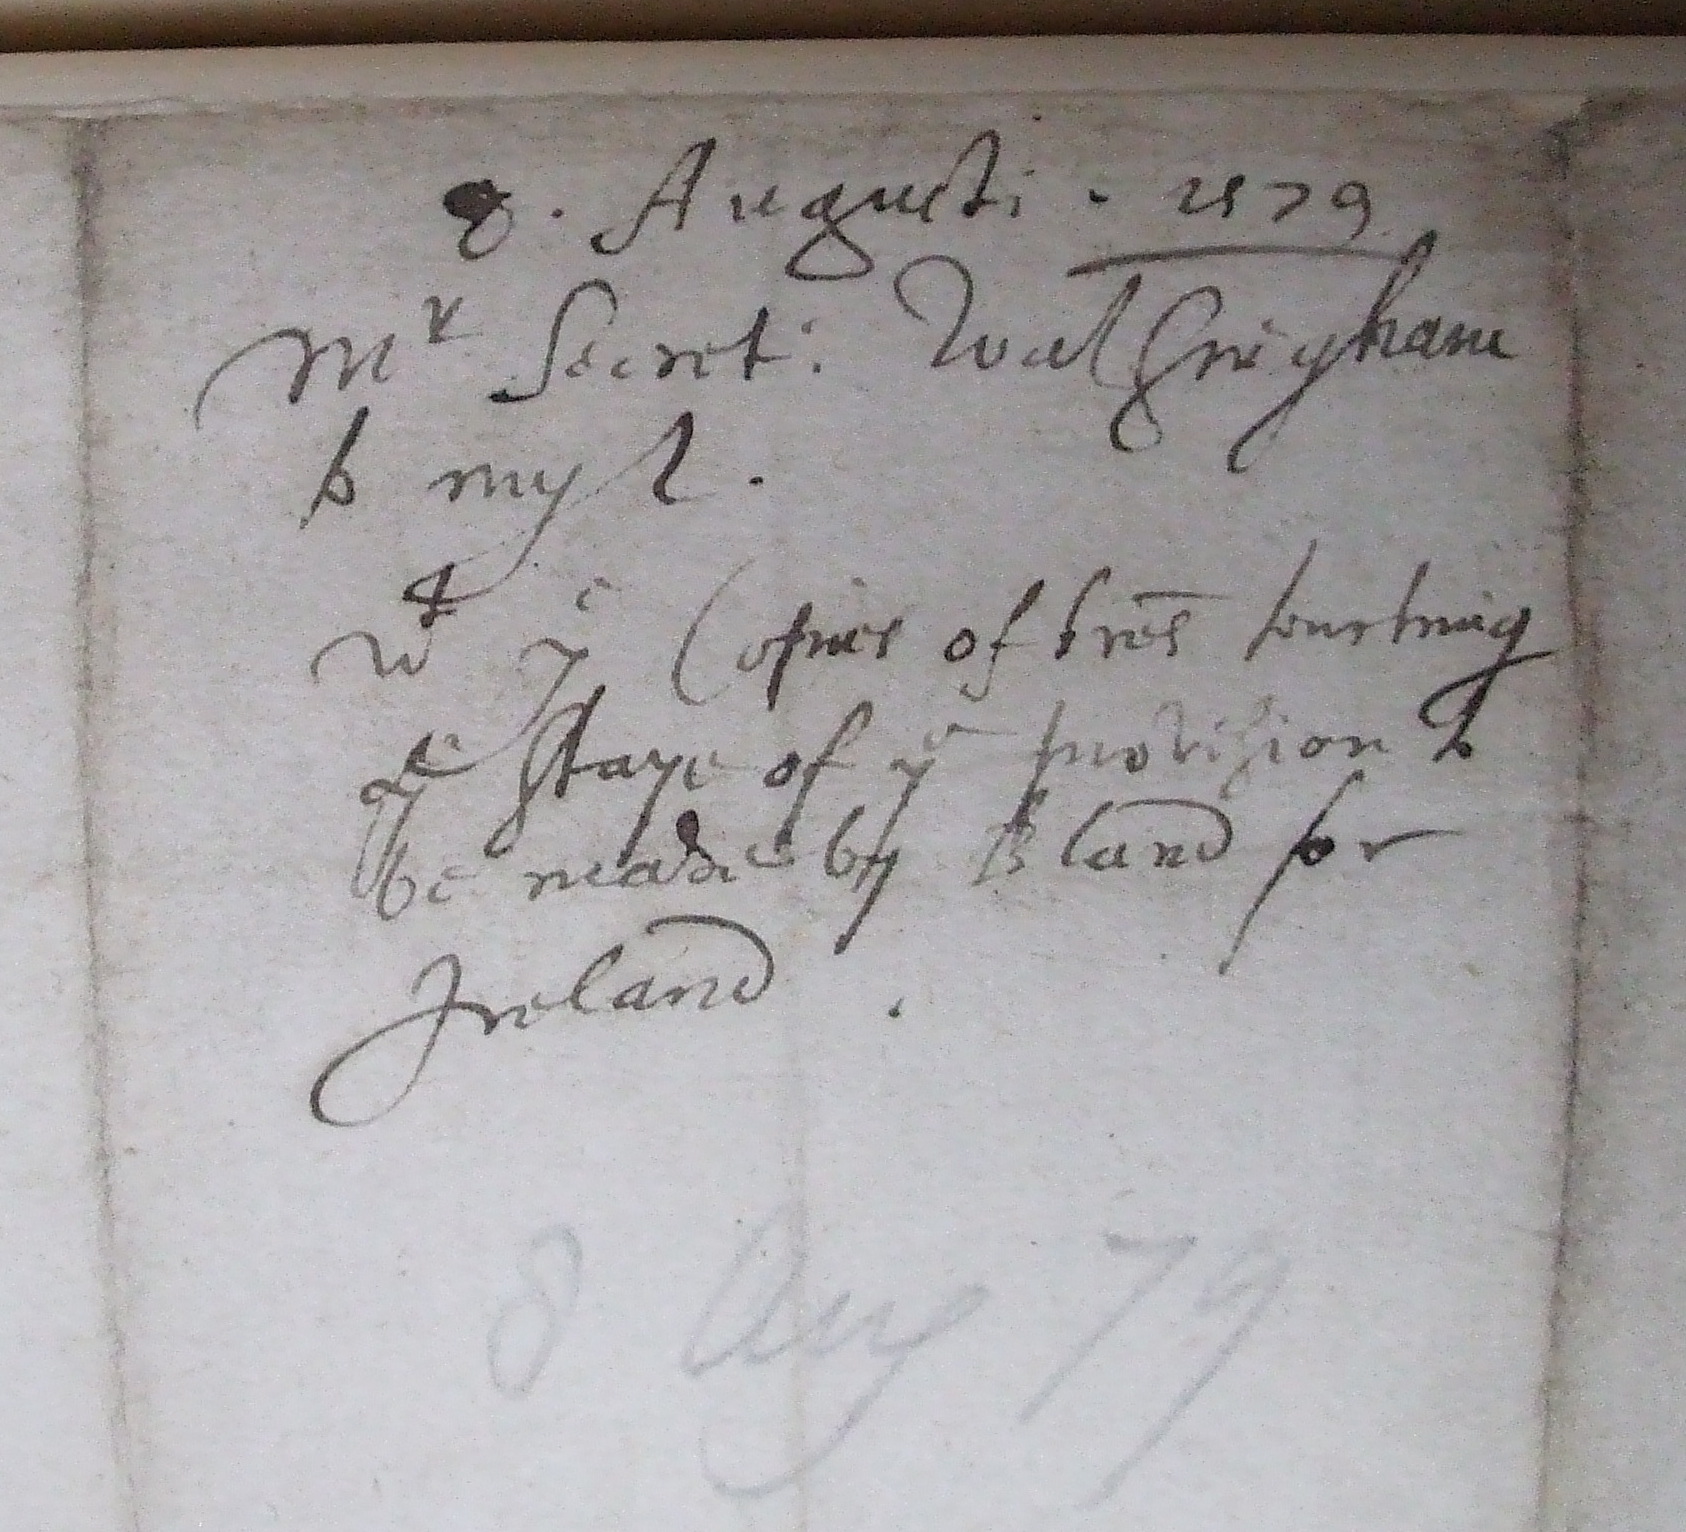 8. Augusti. 1579
Mr Secret: Walsingham
to my L.
wt ye Copies of lres touching
ye staye of ye provision to
be made by Bland for
Ireland.
8 Aug 79